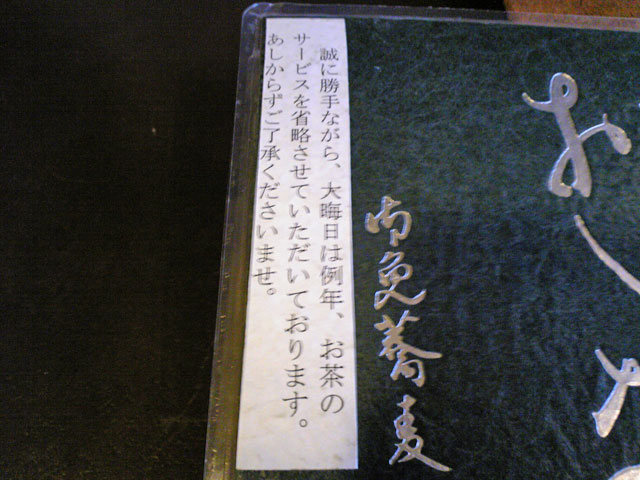 お
御免蕎麦
誠に勝手ながら、大晦日は例年、お茶の
サービスを省略させていただいております。
あしからずご了承くださいませ。